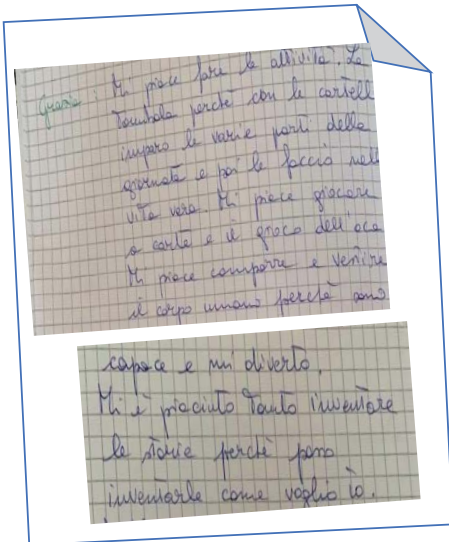 Grazia: Mi piace fare le attività. La
Tombola perché con le cartell
imparo le varie parti della
giornata e poi le faccio nell
vita vera. Mi piace giocare
a carte e il gioco dell'oca
Mi piace comporre e vestire
il corpo umano perché sono
capace e mi diverto.
Mi è piaciuto Tanto inventare
le storie perchè posso
inventarle come voglio io.